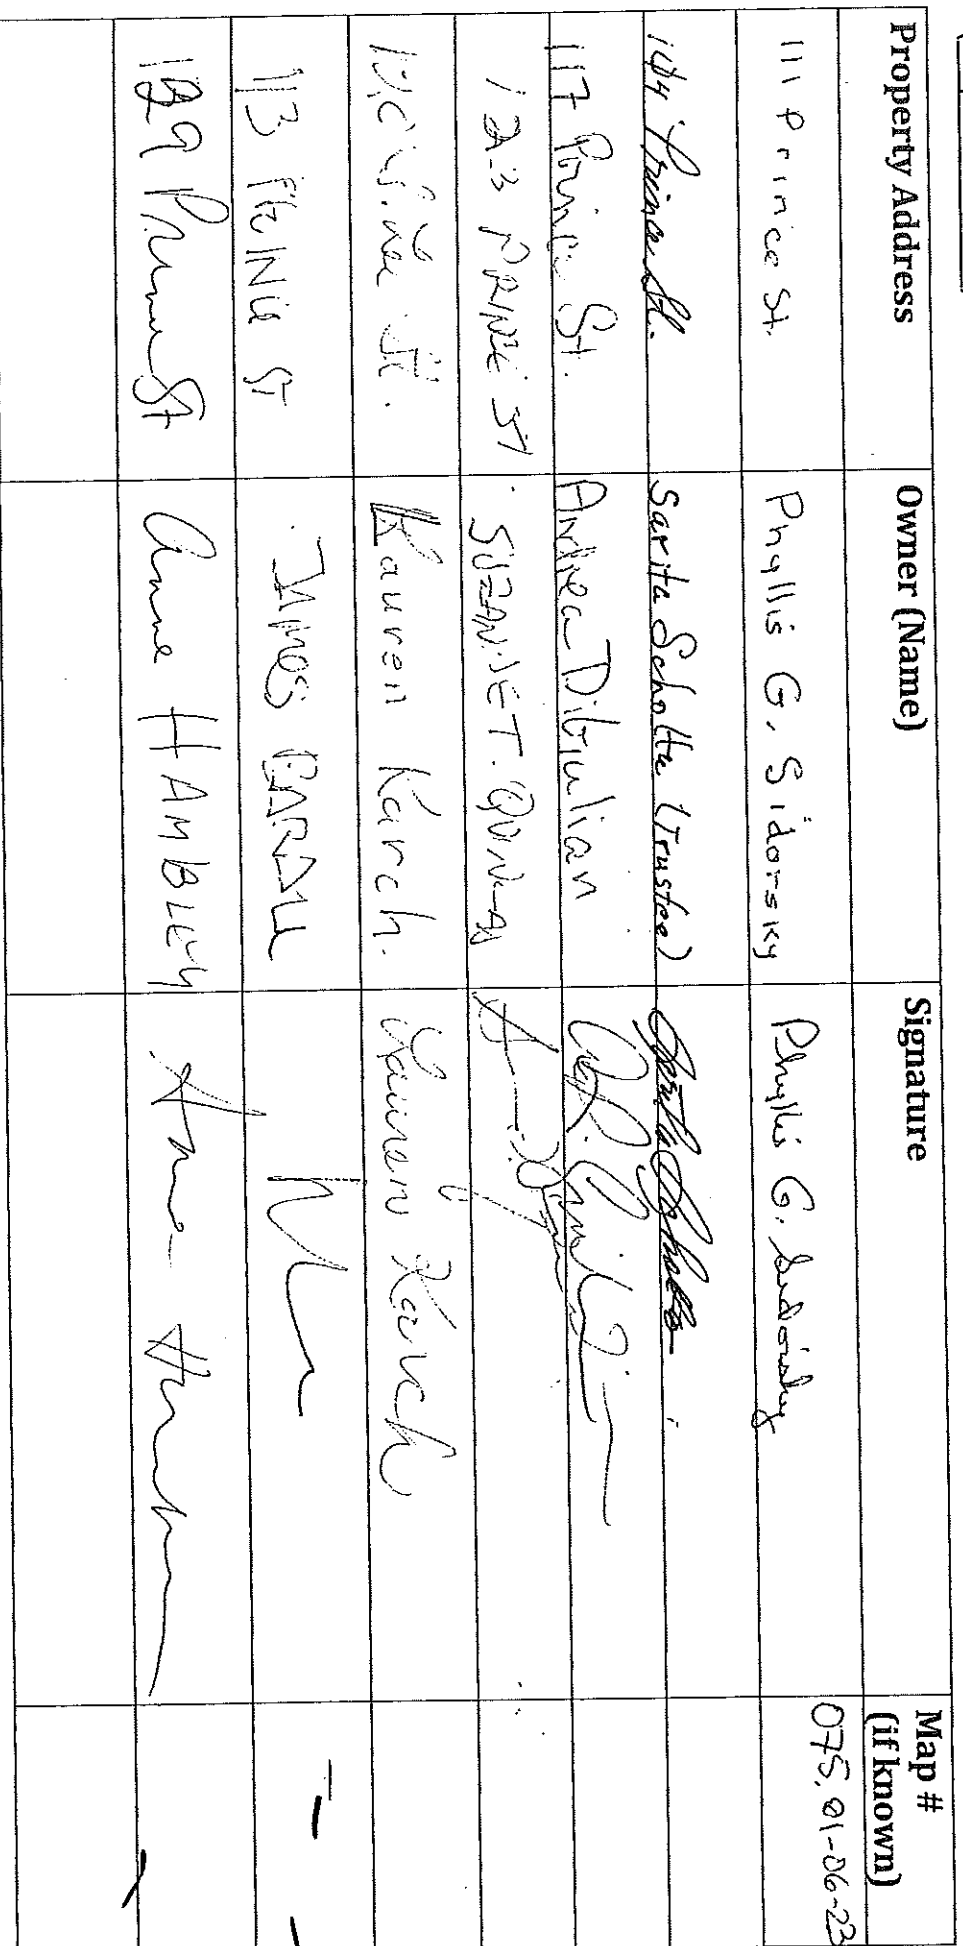 Property Address Owner (Name) Signature Map # (if known)
111 Prince St. Phyllis G. Sidorsky Phyllis G. Sidorsky 075.01-06-23
104 Prince St. Sarita Scholte (Trustee) Sarita Scholte
117 Prince St. Andrea Dibiulian
123 PRINCE ST SUZANNE T. QUINLAN
St. Lauren Karch. Lauren Karch
113 PRINCE ST JAMES
129 Prince St Anne HAMBLEY Anne